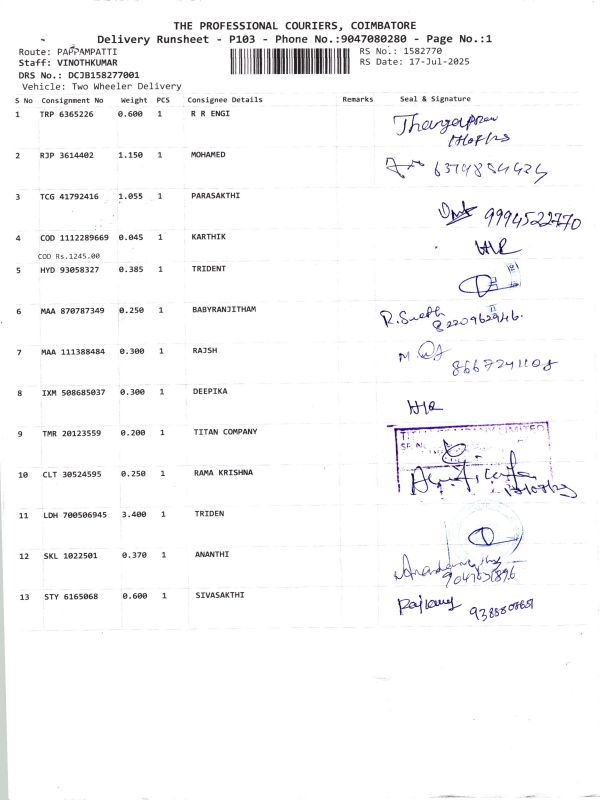 THE PROFESSIONAL COURIERS, COIMBATORE
Delivery Runsheet - P103 - Phone No.:9047080280 - Page No.:1
Route: PAPPAMPATTI RS No.: 1582770
Staff: VINOTHKUMAR RS Date: 17-Jul-2025
DRS No.: DCJB158277001
Vehicle: Two Wheeler Delivery
S No Consignment No Weight PCS Consignee Details Remarks Seal & Signature
1 TRP 6365226 0.600 1 R R ENGI
2 RJP 3614402 1.150 1 MOHAMED
6374884424
3 TCG 41792416 1.055 1 PARASAKTHI
9994522770
4 COD 1112289669 0.045 1 KARTHIK
COD Rs.1245.00
5 HYD 93058327 0.385 1 TRIDENT
6 MAA 870787349 0.250 1 BABYRANJITHAM
8220962946.
7 MAA 111388484 0.300 1 RAJSH
8667241108
8 IXM 508685037 0.300 1 DEEPIKA
9 TMR 20123559 0.200 1 TITAN COMPANY
10 CLT 30524595 0.250 1 RAMA KRISHNA
11 LDH 700506945 3.400 1 TRIDEN
12 SKL 1022501 0.370 1 ANANTHI
13 STY 6165068 0.600 1 SIVASAKTHI